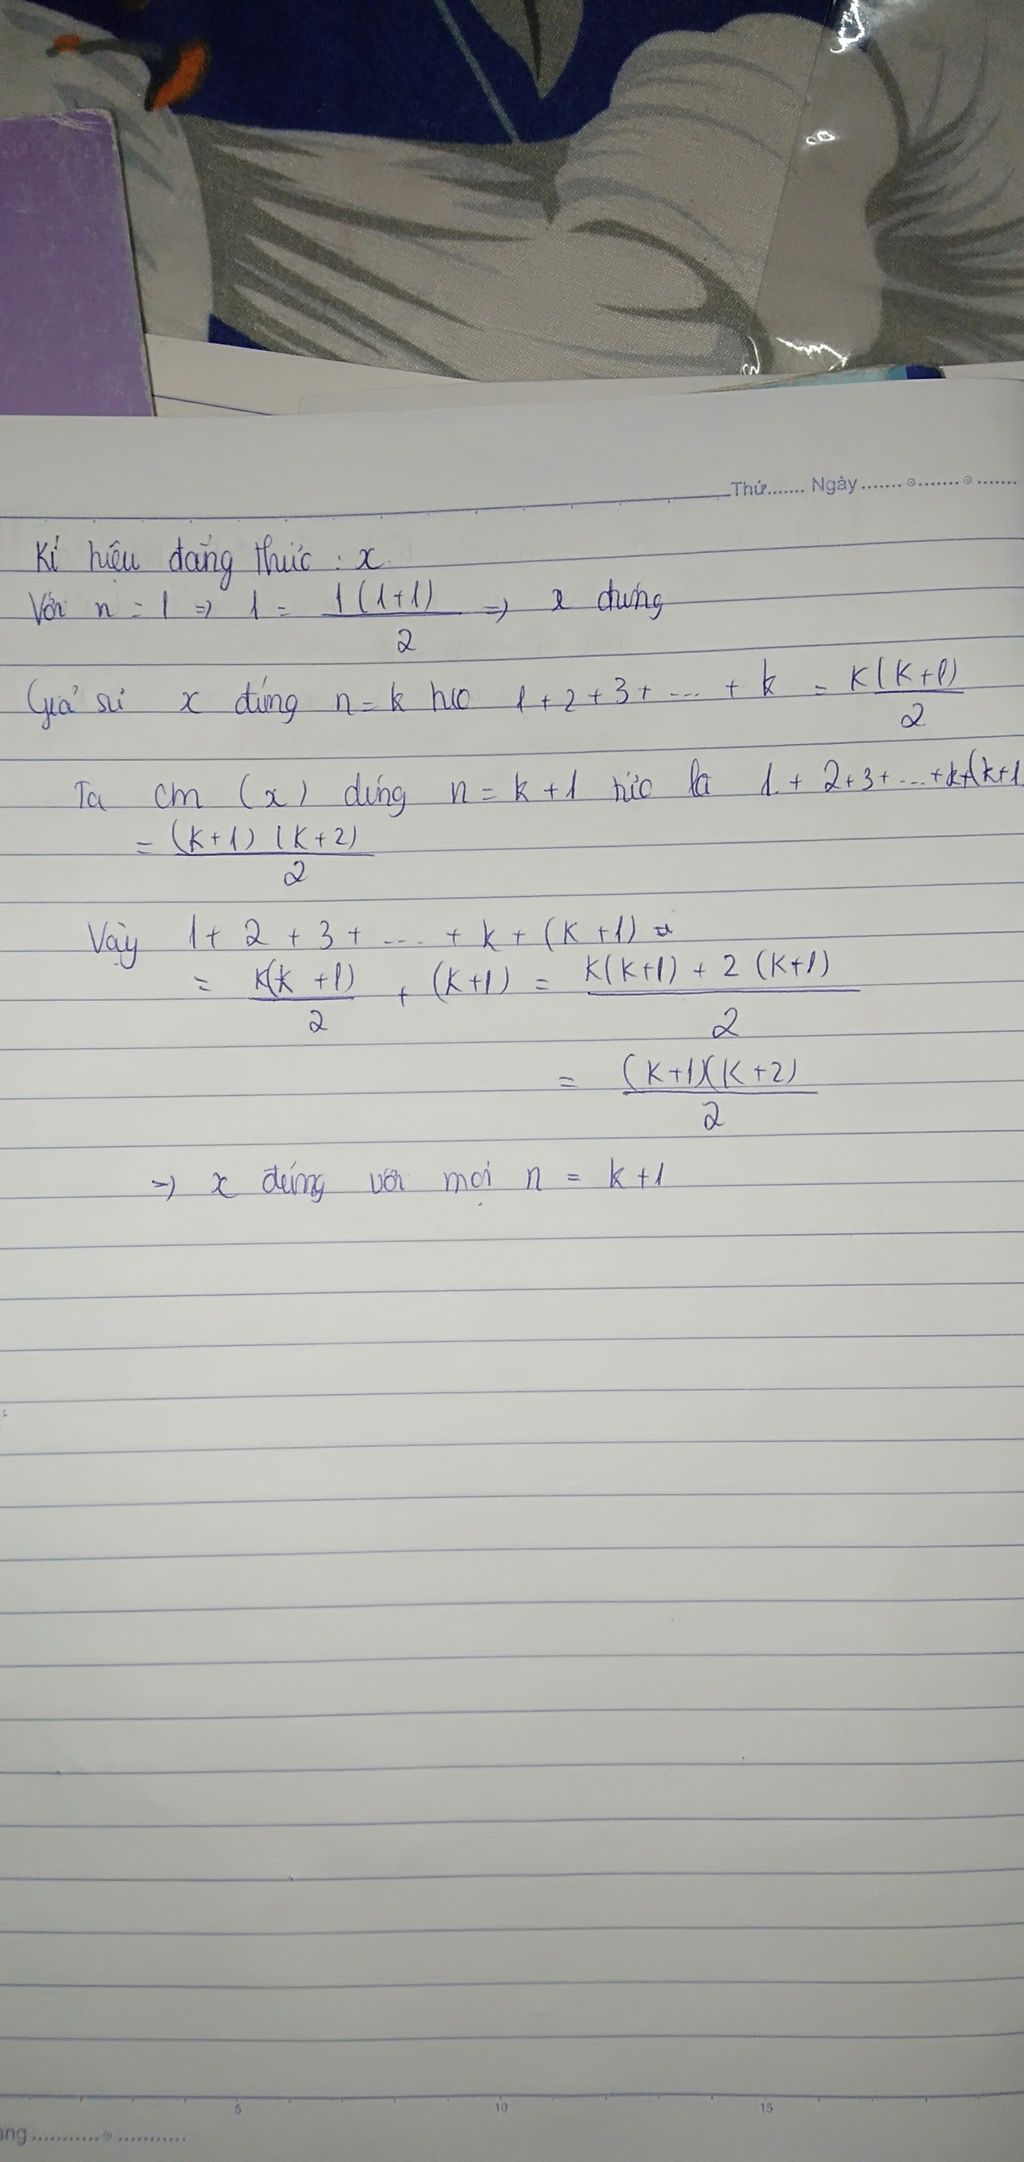 Thứ....... Ngày.......
Kí hiệu đẳng thức : x
Với n = 1 => 1 = 1(1+1)/2 => x đúng
Giả sử x đúng n = k tức 1+2+3+ ... + k = k(k+1)/2
Ta cm (x) đúng n = k+1 tức là 1 + 2+3+ ...+k+(k+1
= (k+1)(k+2)/2
Vậy 1+ 2 + 3 + ... + k + (k+1) =
= k(k+1)/2 + (k+1) = k(k+1) + 2(k+1)/2
= (k+1)(k+2)/2
=> x đúng với mọi n = k+1
5 10 15